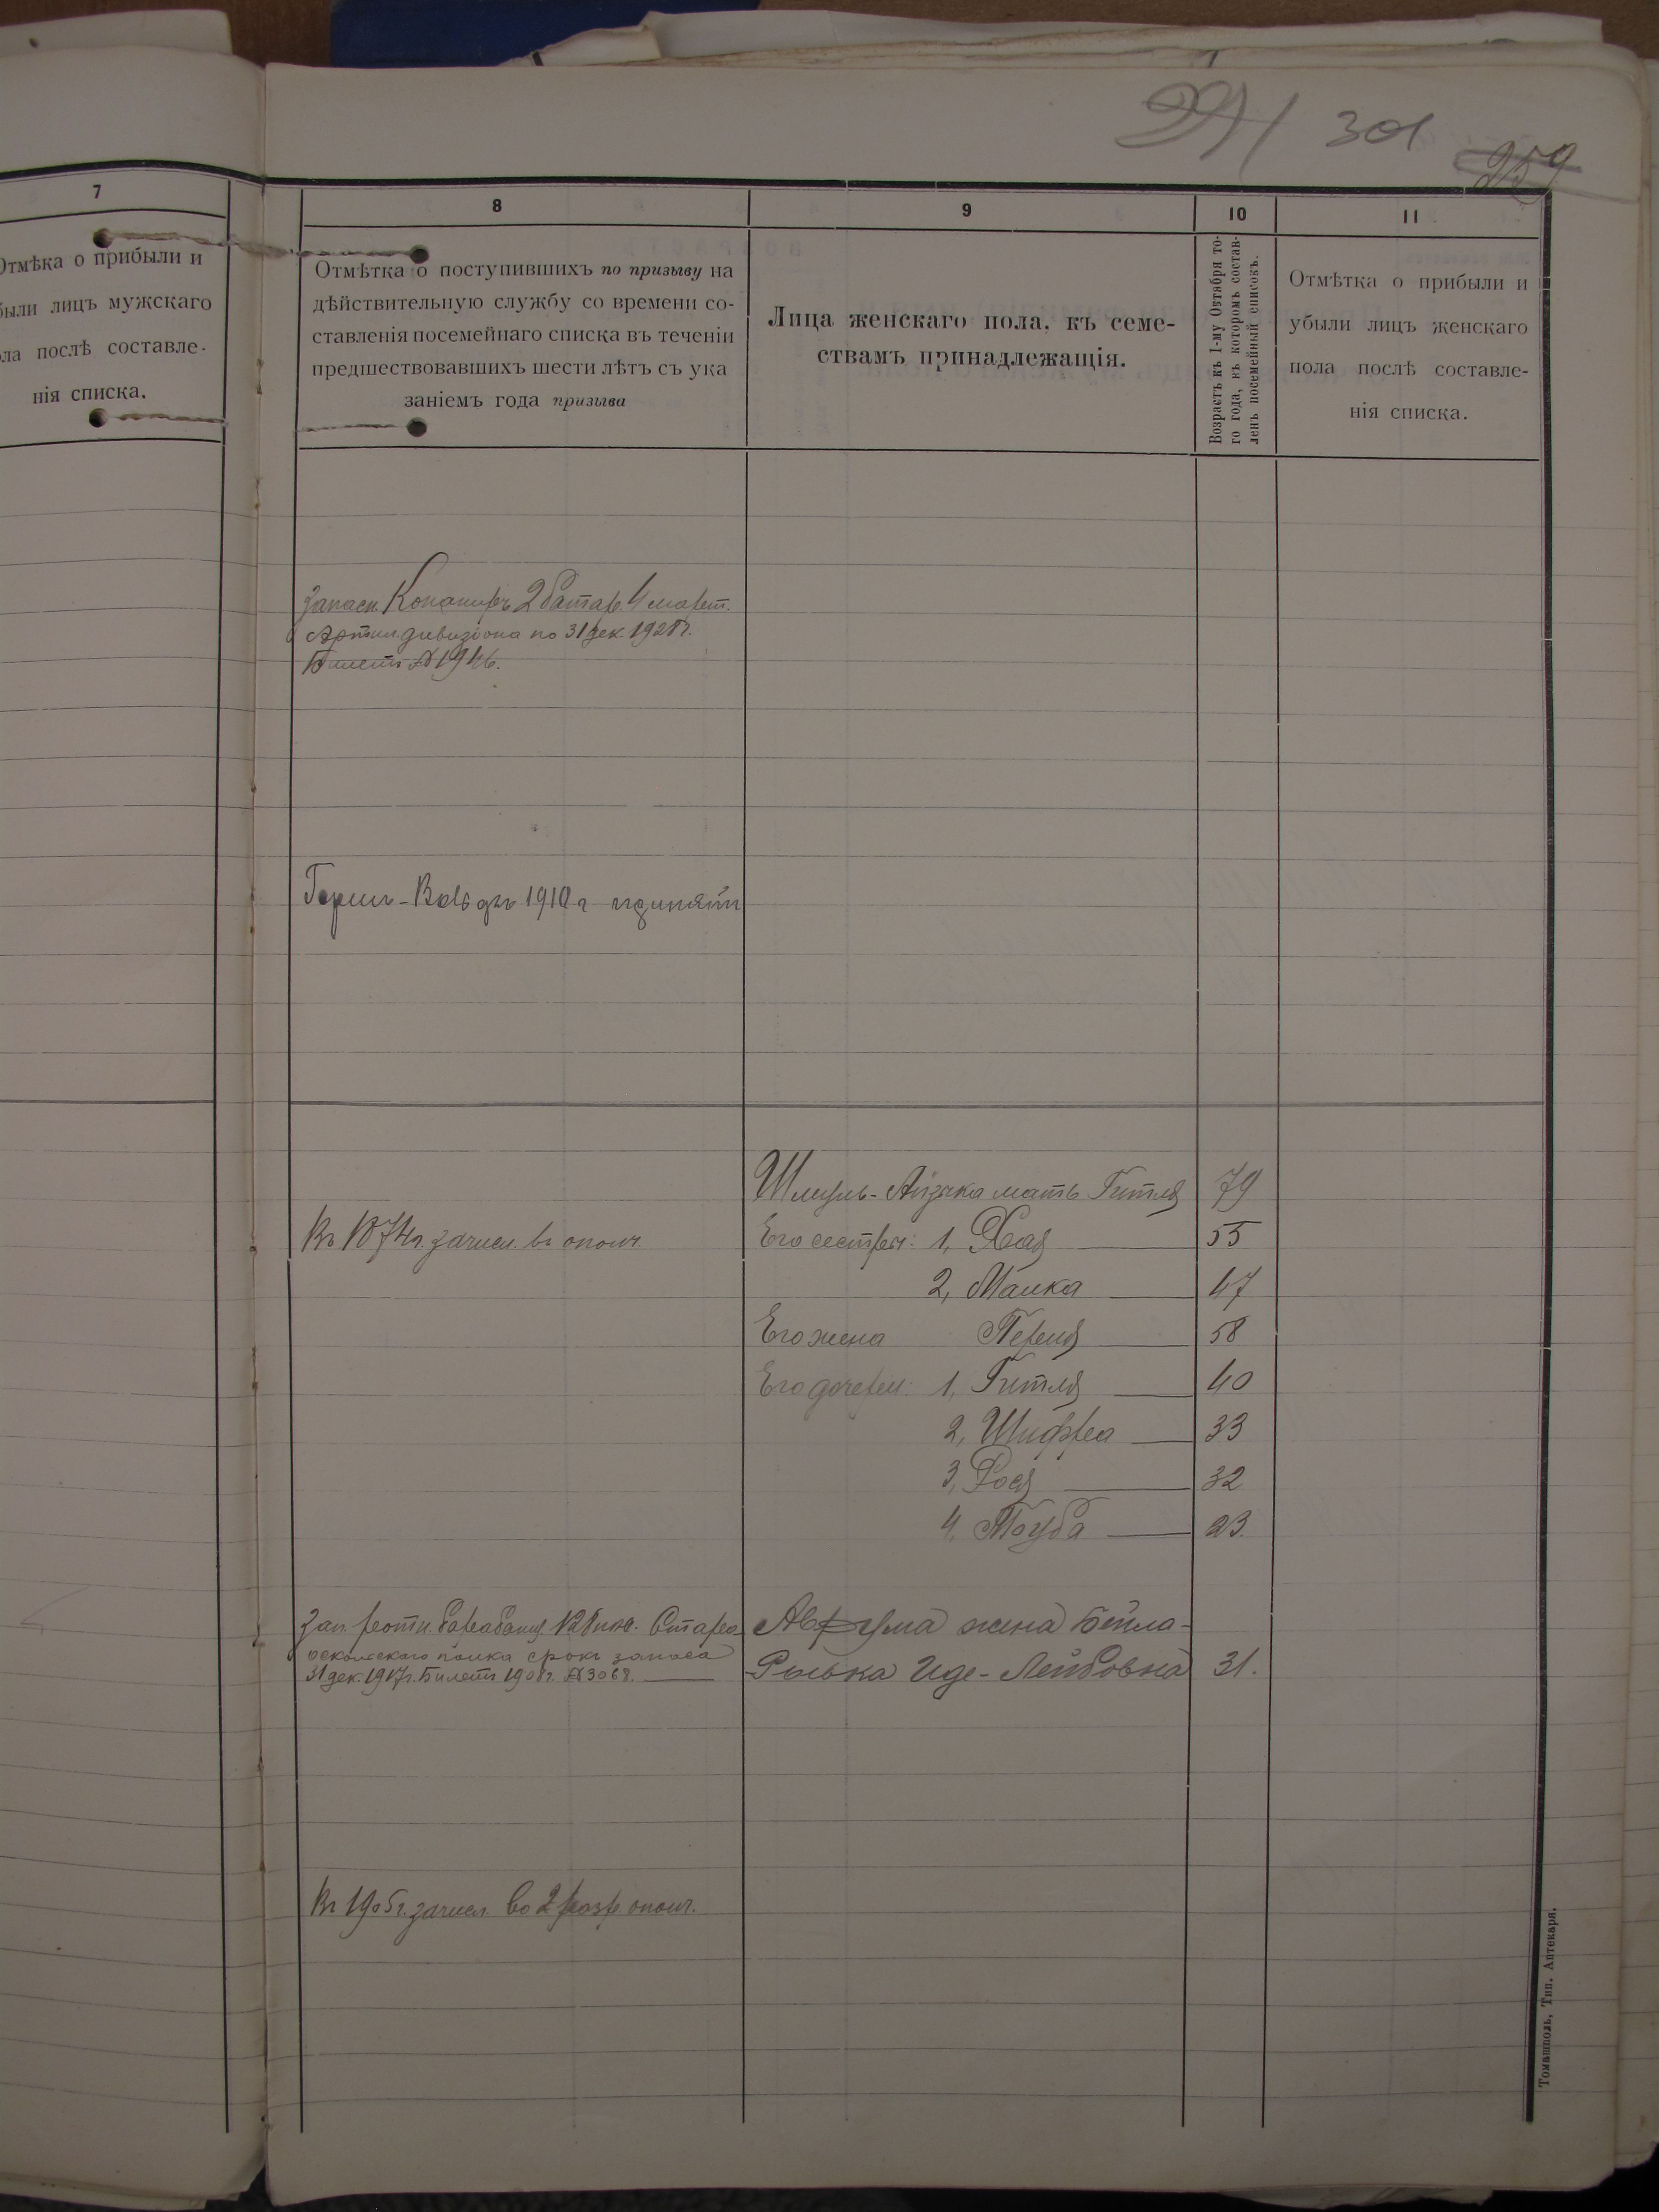 301
259
7
Отмѣка о прибыли и
были лицъ мужскаго
ола послѣ составле-
нія списка.
8
Отмѣтка о поступившихъ по призыву на
дѣйствительную службу со времени со-
ставленія посемейнаго списка въ теченіи
предшествовавшихъ шести лѣтъ съ ука
заніемъ года призыва
9
Лица женскаго пола, къ семе-
ствамъ принадлежащія.
10
Возрастъ къ 1-му Октября то-
го года, къ которомъ состав-
ленъ посемейный списокъ.
11
Отмѣтка о прибыли и
убыли лицъ женскаго
пола послѣ составле-
нія списка.
Запасн. 2 батар. 4 морт.
Артил дивизіона по 31 дек. 1928 г.
Билетъ № 1946.
1910 г
Шмуль-Айзика мать Гитля 79
Въ 1874 г. зачисл. въ ополч.
Его сестры: 1, Хая 55
2, Малка 47
Его жена Перля 58
Его дочери: 1, Гитля 40
2, Шифра 33
3, Рося 32
4, Тауба 23.
Зап. ротн. барабанщ. Старо-
оскольскаго полка срокъ запаса
31 дек. 1917 г. Билетъ 190 г. № 3068.
Аврума жена Бейла-
Рывка Иде-Лейбовна 31.
Въ 1905 г. зачисл во 2 разр ополч.
Томашполь, Тип. Аптекаря.